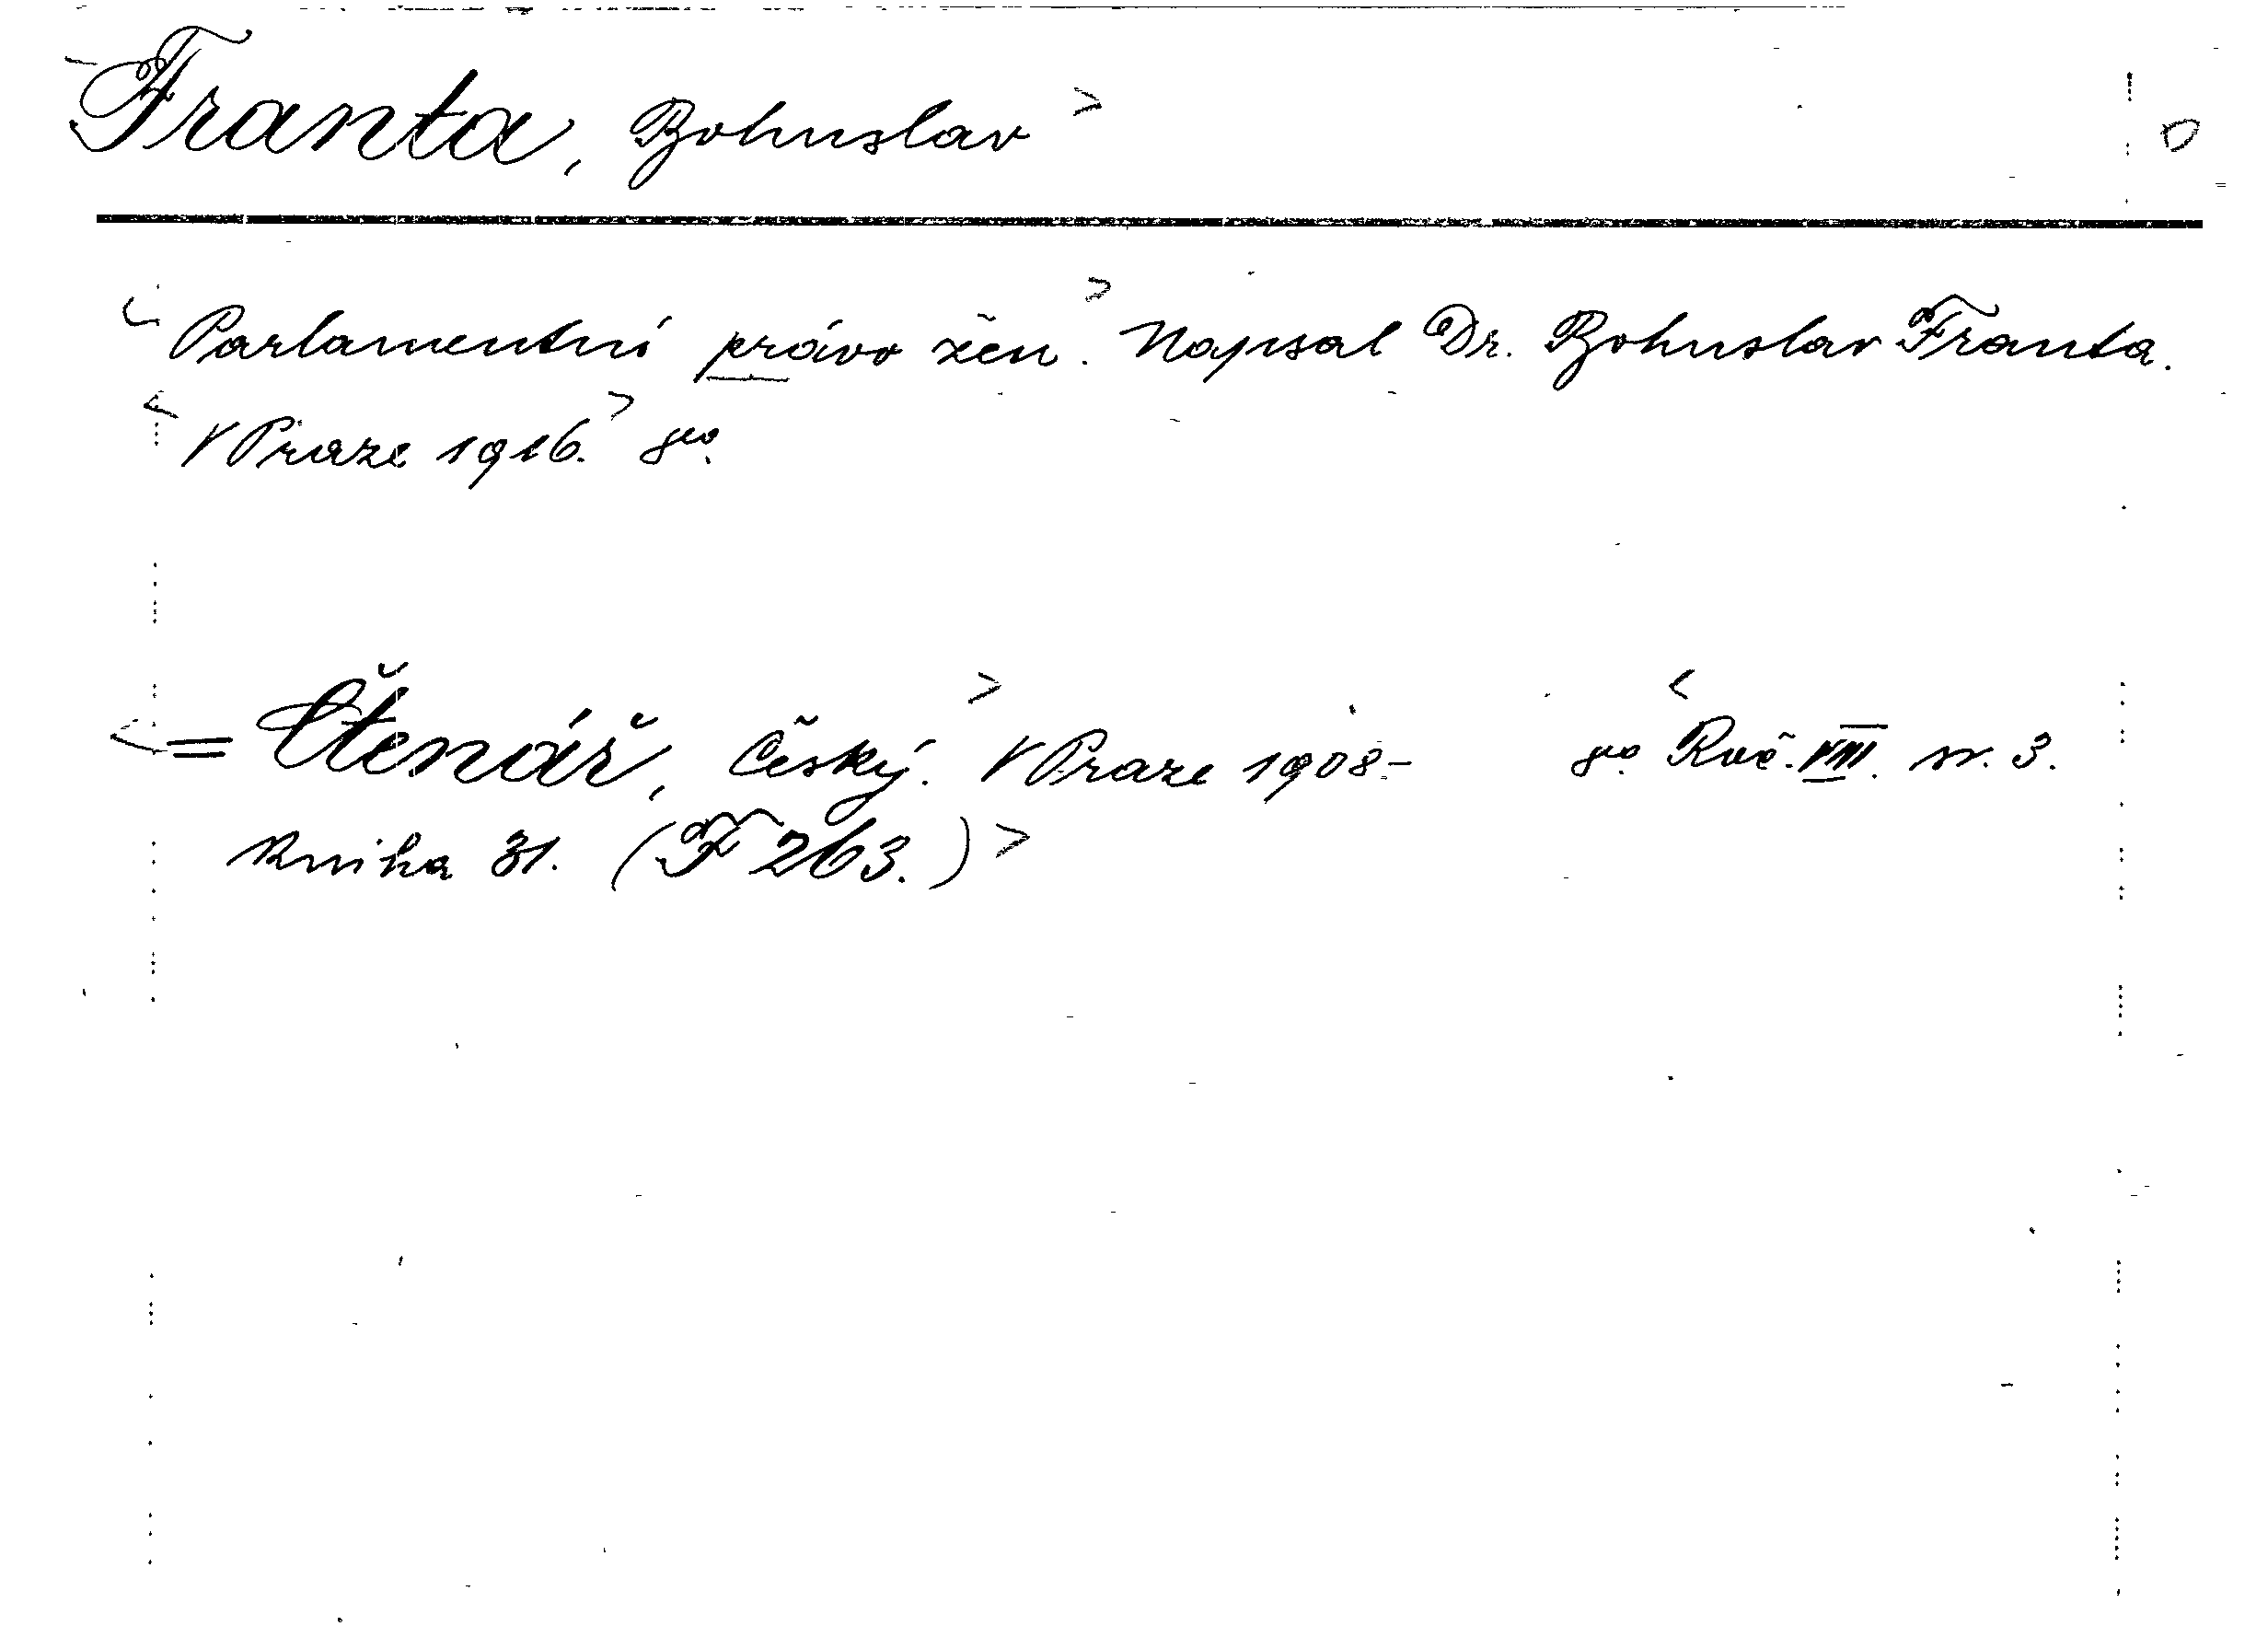 Franta, Bohuslav
Parlamentní právo žen. Napsal Dr. Bohuslav Franta.
V Praze 1916. 8vo.
= Čtenář, Český. V Praze 1908- 8vo. Roč. VIII. sv. 3.
Kniha 31. (F 263.)